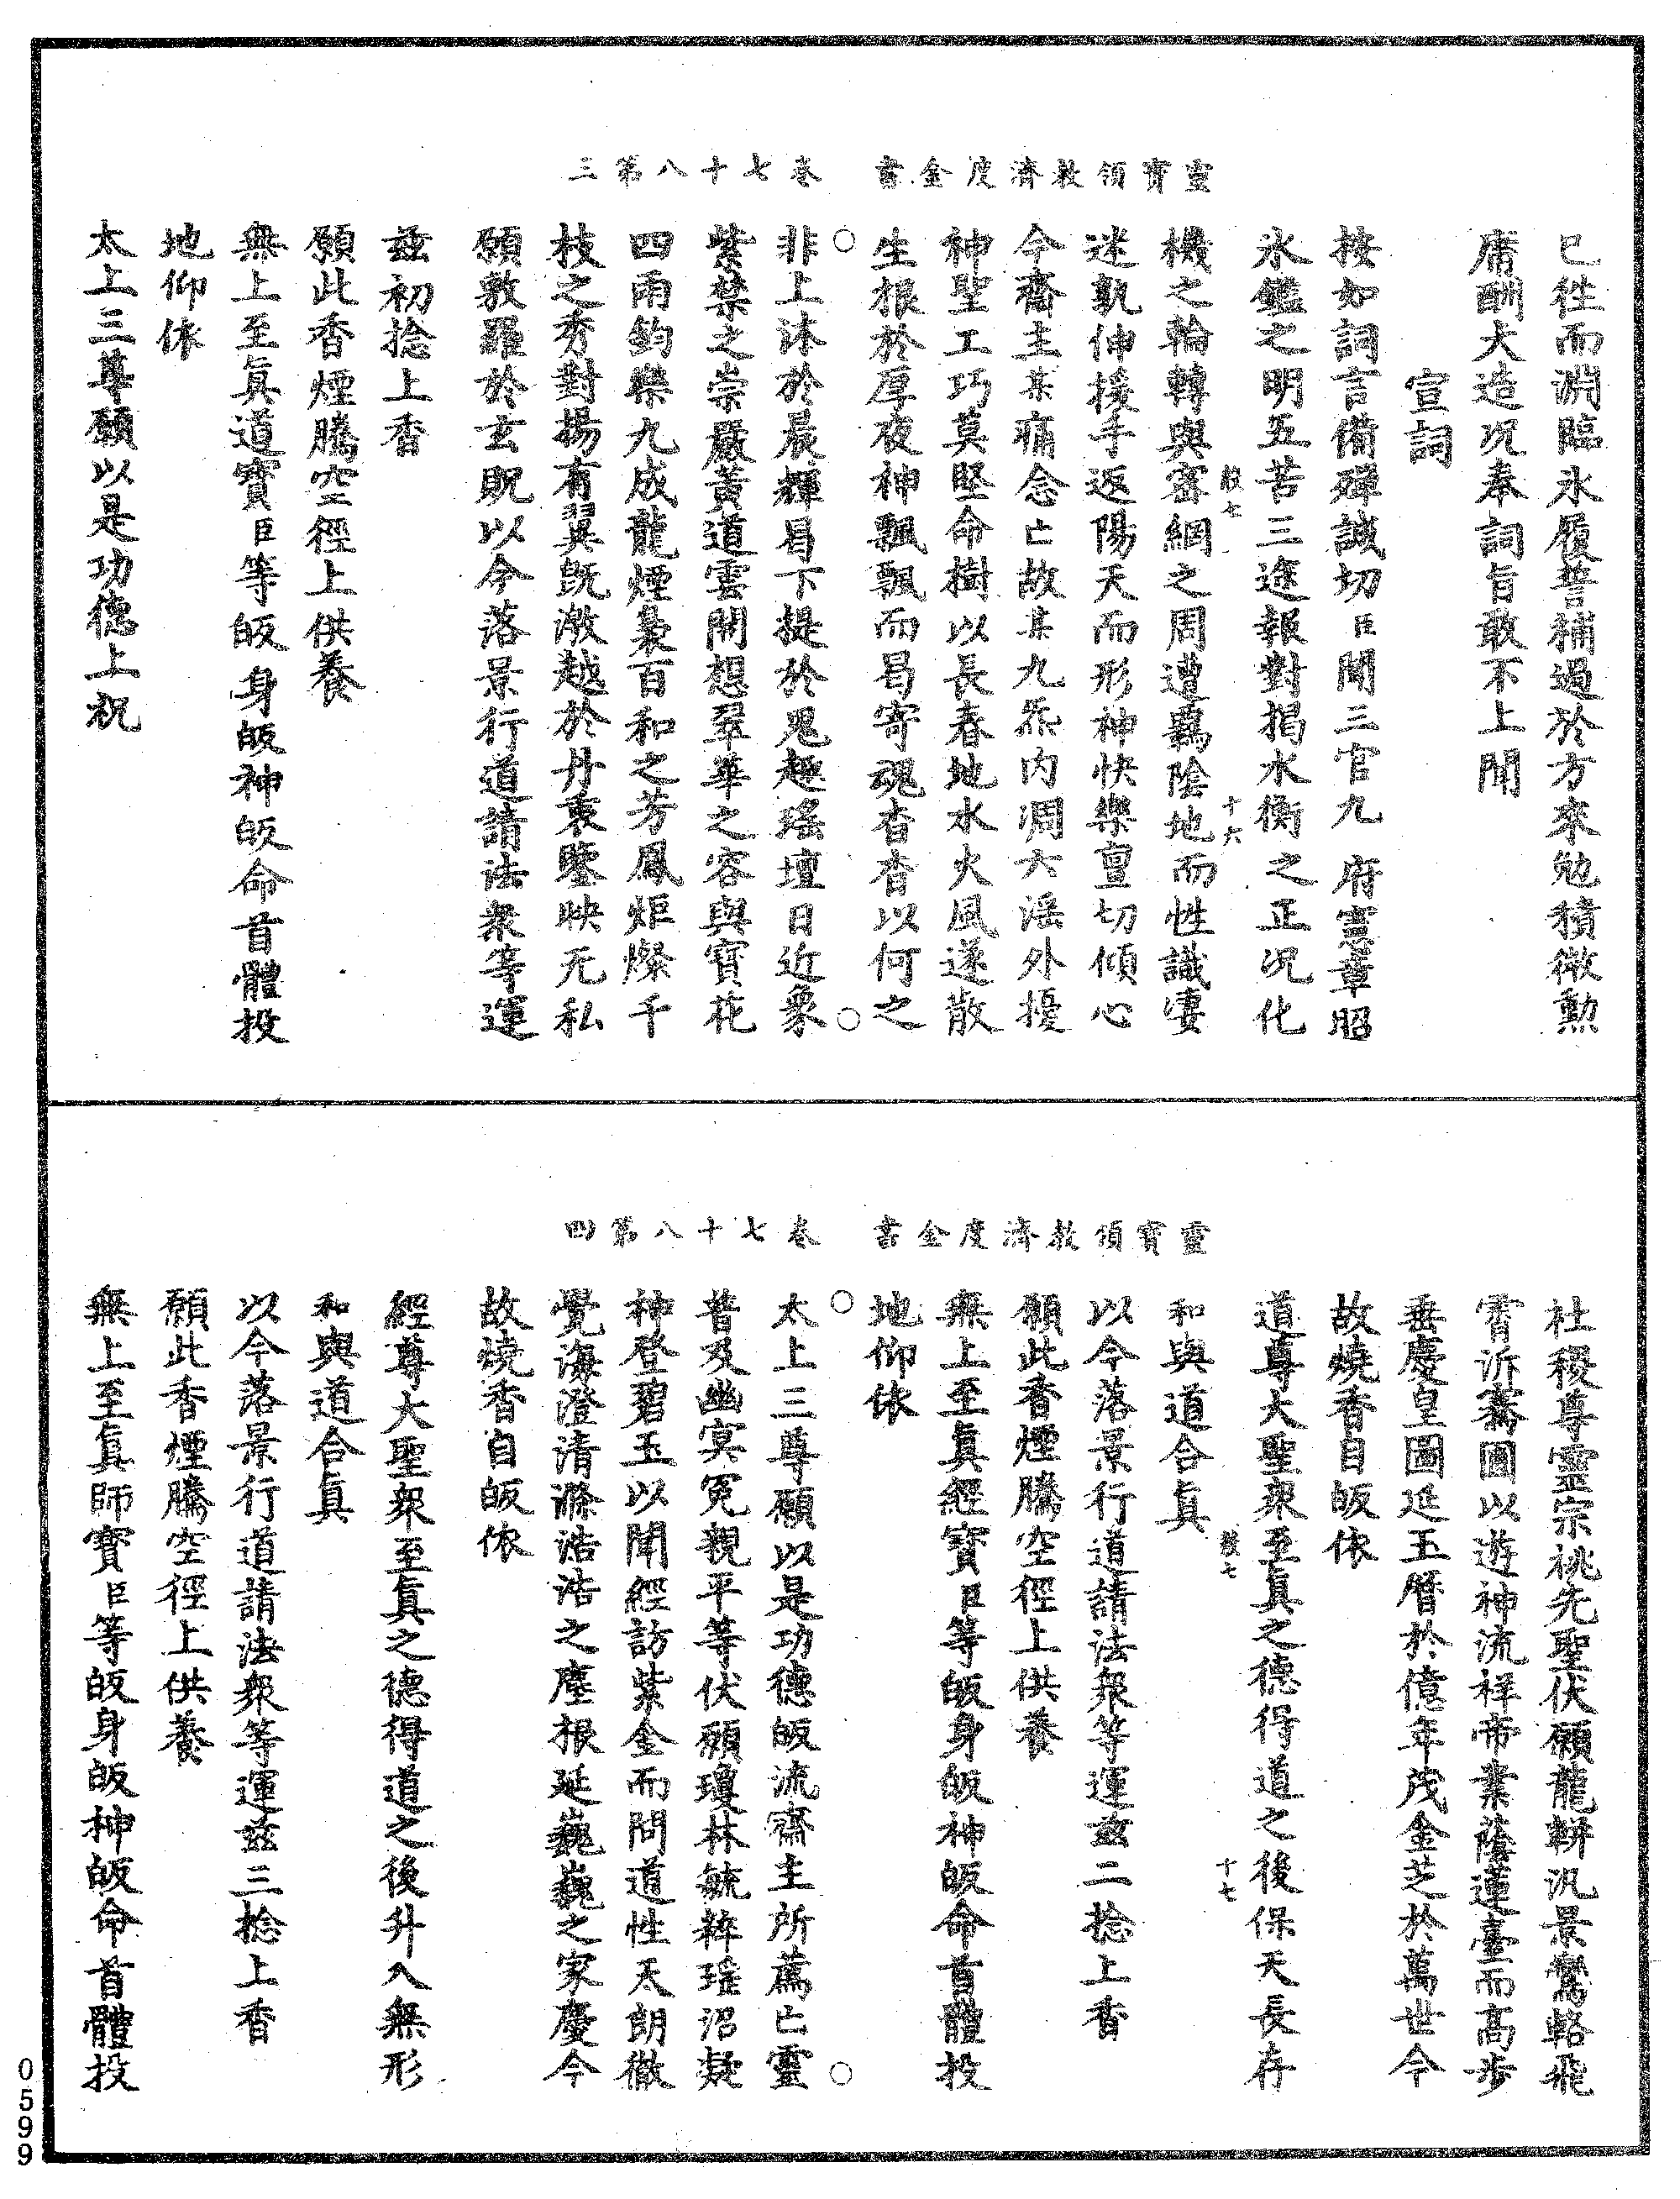 靈寶領敎濟度金書　卷七十八第三
已徃而淵臨氷履誓補過於方來勉積微勲
庸酬大造况奉詞旨敢不上聞
宣詞
按如詞言備殫誠切臣聞三官九府憲章昭
氷鑑之明五苦三途報對揭水衡之正况化
機之輪轉與宻網之周遭羈陰地而性識凄
迷孰伸援手返陽天而形神快樂亶切傾心
今齋主某痛念亡故某九炁内凋六淫外擾
神聖工巧莫堅命樹以長春地水火風遂散
生根於厚夜神飄飄而曷寄魂杳杳以何之
非上沐於晨輝曷下提於鬼趣瑶壇日近象
紫禁之崇嚴黃道雲開想翠華之容與寶花
四雨鈞樂九成龍煙裊百和之芳鳳炬燦千
枝之秀對揚有翼旣激越於丹衷鑒映无私
願敷羅於玄貺以今落景行道請法衆等運
兹初捻上香
願此香煙騰空徑上供養
無上至眞道寶臣等皈身皈神皈命首體投
地仰依
太上三尊願以是功德上祝
十六
靈寶領敎濟度金書　卷七十八第四
社稷尊靈宗祧先聖伏願龍軿汎景鸞輅飛
霄泝騫圃以遊神流祥帝業蔭蓮臺而高步
垂慶皇圖延玉曆於億年茂金芝於萬世今
故燒香自皈依
道尊大聖衆至眞之德得道之後保天長存
和與道合眞
以今落景行道請法衆等運兹二捻上香
願此香煙騰空徑上供養
無上至眞經寶臣等皈身皈神皈命首體投
地仰依
太上三尊願以是功德皈流齋主所薦亡靈
普及幽冥冤親平等伏願瓊林毓粹瑶沼凝
神登碧玉以聞經訪紫金而問道性天朗徹
覺海澄清滌浩浩之塵根延巍巍之家慶今
故燒香自皈依
經尊大聖衆至眞之德得道之後升入無形
和與道合眞
以今落景行道請法衆等運兹三捻上香
願此香煙騰空徑上供養
無上至眞師寶臣等皈身皈神皈命首體投
十七
0599